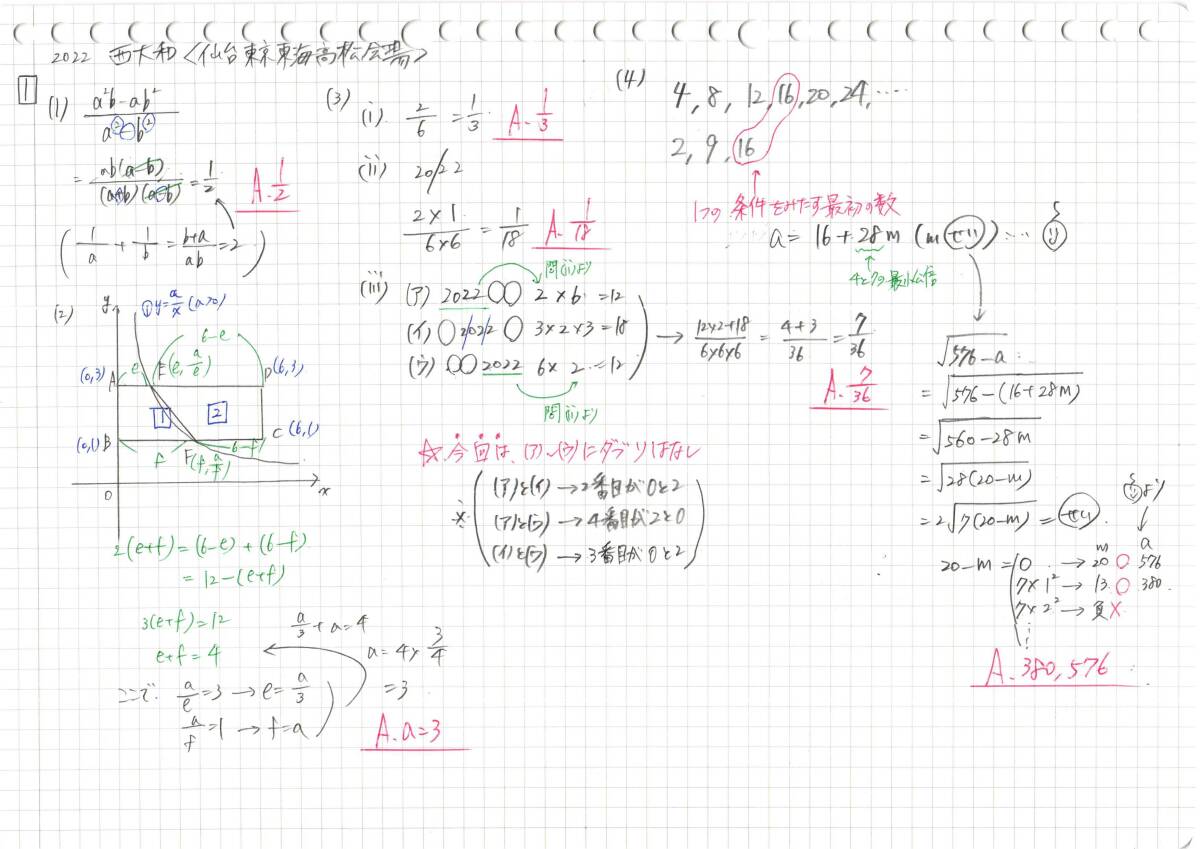 2022 西大和<仙台東京東海高松会場>
1
(1) (a²b-ab²)/(a²-b²)
= ab(a-b)/(a+b)(a-b) = 1/2
A. 1/2
(1/a + 1/b = (b+a)/ab = 2)
(2) y
① y=a/x (a>0)
6-e
(0,3) A e E(e, a/e) D(6,3)
1 2
(0,1) B f F(f, a/f) 6-f C(6,1)
0 x
2(e+f)=(6-e)+(6-f)
=12-(e+f)
3(e+f)=12
e+f=4
ここで a/e=3 → e=a/3
a/f=1 → f=a
a/3+a=4
a=4×3/4
=3
A. a=3
(3)
(i) 2/6 = 1/3 A. 1/3
(ii) 20/22
(2×1)/(6×6) = 1/18 A. 1/18
問(ii)より
(iii) (ア) 2022○○ 2×6=12
(イ) ○2022○ 3×2×3=18
(ウ) ○○2022 6×2=12
問(ii)より
→ (12×2+18)/(6×6×6) = (4+3)/36 = 7/36
A. 7/36
☆今回は、(ア)~(ウ)にダブりはなし
※ (ア)と(イ)→2番目が0と2
(ア)と(ウ)→4番目が2と0
(イ)と(ウ)→3番目が0と2
(4)
4, 8, 12, 16, 20, 24, …
2, 9, 16
1つの条件をみたす最初の数
a=16+28m (m せいすう)…
4と7の最小公倍
√(576-a)
=√(576-(16+28m))
=√(560-28m)
=√(28(20-m))
=2√(7(20-m)) =
より
m a
20-m=0 → 20 ○ 576
7×1² → 13 ○ 380
7×2² → 負 ×
A. 380, 576